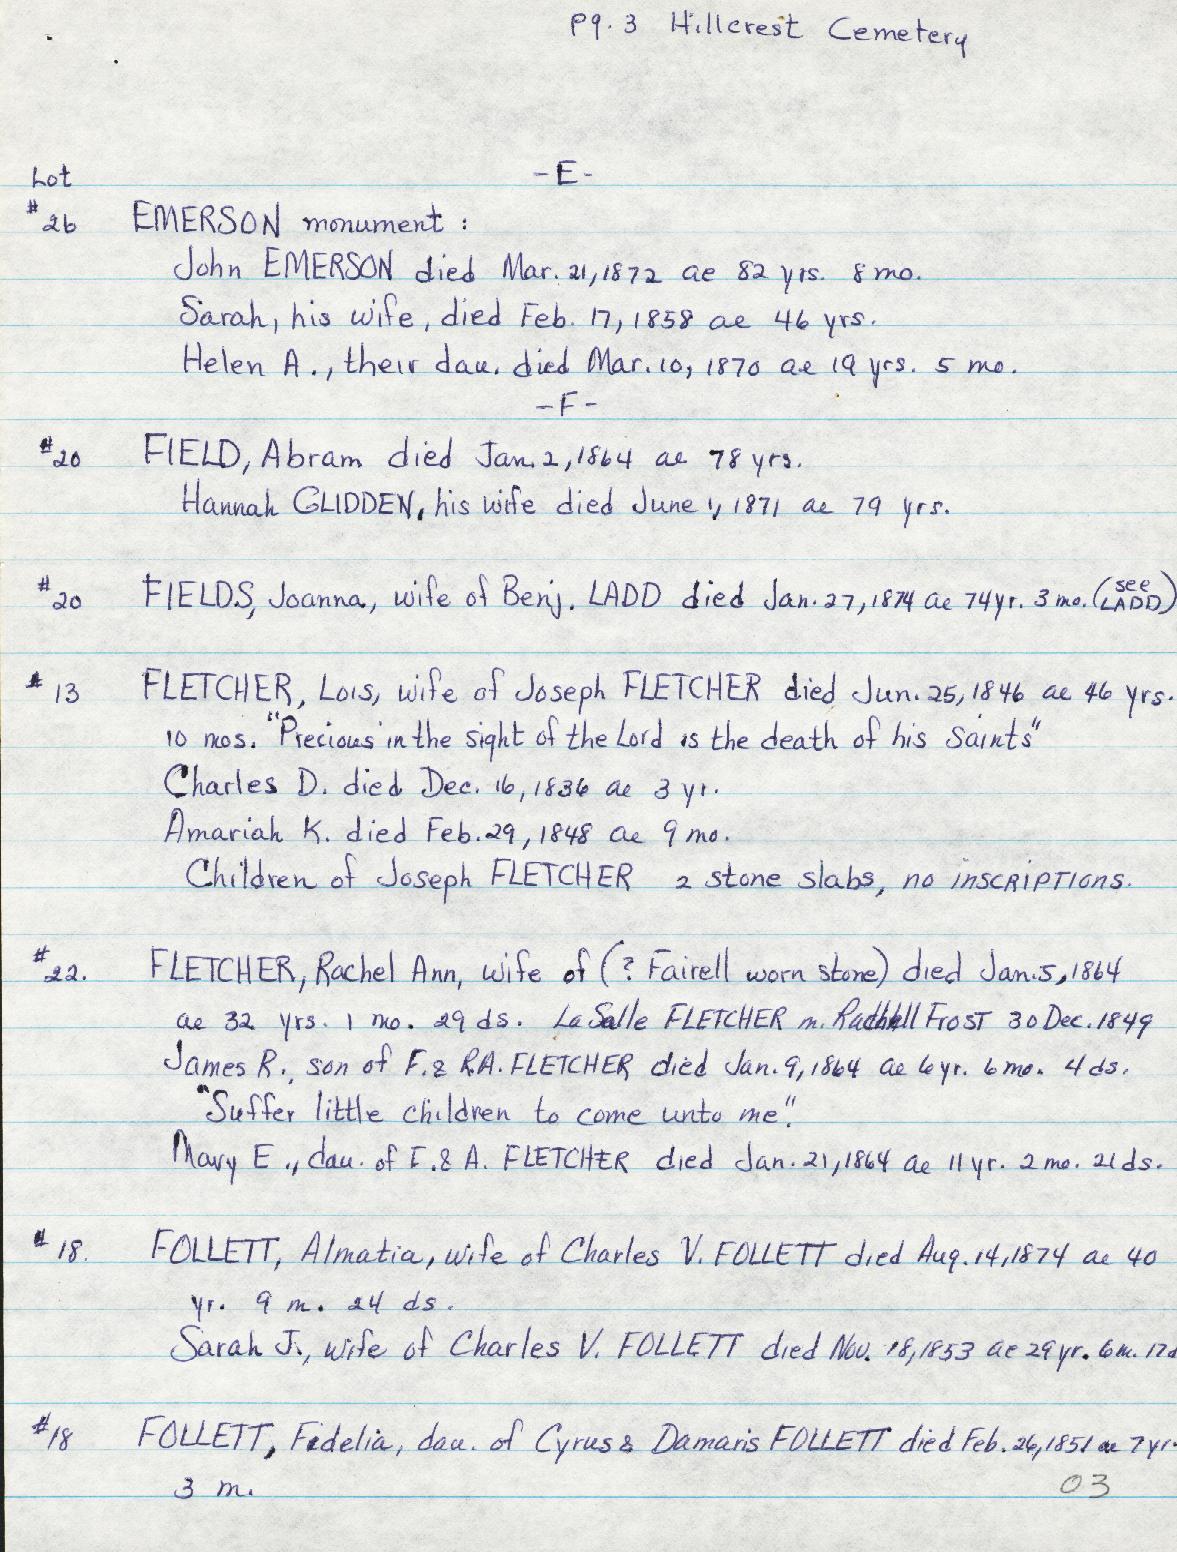 Pg. 3 Hillcrest Cemetery
Lot -E-
#26 EMERSON monument:
John EMERSON died Mar. 21, 1872 ae 82 yrs. 8 mo.
Sarah, his wife, died Feb. 17, 1858 ae 46 yrs.
Helen A., their dau. died Mar. 10, 1870 ae 19 yrs. 5 mo.
-F-
#20 FIELD, Abram died Jan. 2, 1864 ae 78 yrs.
Hannah GLIDDEN, his wife died June 1, 1871 ae 79 yrs.
#20 FIELDS, Joanna, wife of Benj. LADD died Jan. 27, 1874 ae 74 yr. 3 mo. (see LADD)
#13 FLETCHER, Lois, wife of Joseph FLETCHER died Jun. 25, 1846 ae 46 yrs.
10 mos. "Precious in the sight of the Lord is the death of his Saints"
Charles D. died Dec. 16, 1836 ae 3 yr.
Amariah K. died Feb. 29, 1848 ae 9 mo.
Children of Joseph FLETCHER 2 stone slabs, no inscriptions.
#22. FLETCHER, Rachel Ann, wife of (? Fairell worn stone) died Jan. 5, 1864
ae 32 yrs. 1 mo. 29 ds. LaSalle FLETCHER m. FROST 30 Dec. 1849
James R., son of F. & R.A. FLETCHER died Jan. 9, 1864 ae 6 yr. 6 mo. 4 ds.
"Suffer little children to come unto me."
Mary E., dau. of F. & A. FLETCHER died Jan. 21, 1864 ae 11 yr. 2 mo. 21 ds.
#18. FOLLETT, Almatia, wife of Charles V. FOLLETT died Aug. 14, 1874 ae 40
yr. 9 m. 24 ds.
Sarah J., wife of Charles V. FOLLETT died Nov. 18, 1853 ae 29 yr. 6 m. 17 d
#18 FOLLETT, Fidelia, dau. of Cyrus & Damaris FOLLETT died Feb. 26, 1851 ae 7 yr.
3 m.
03